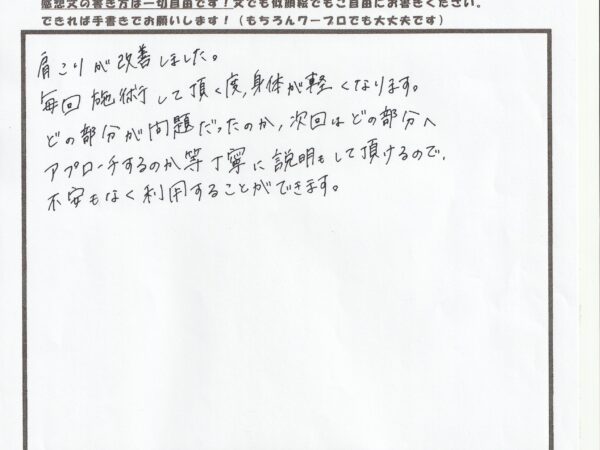 感想文の書き方は一切自由です!文でも似顔絵でもご自由にお書きください。
できれば手書きでお願いします!(もちろんワープロでも大丈夫です)
肩こりが改善しました。
毎回施術して頂く度、身体が軽くなります。
どの部分が問題だったのか、次回はどの部分へ
アプローチするのか等丁寧に説明もして頂けるので、
不安もなく利用することができます。